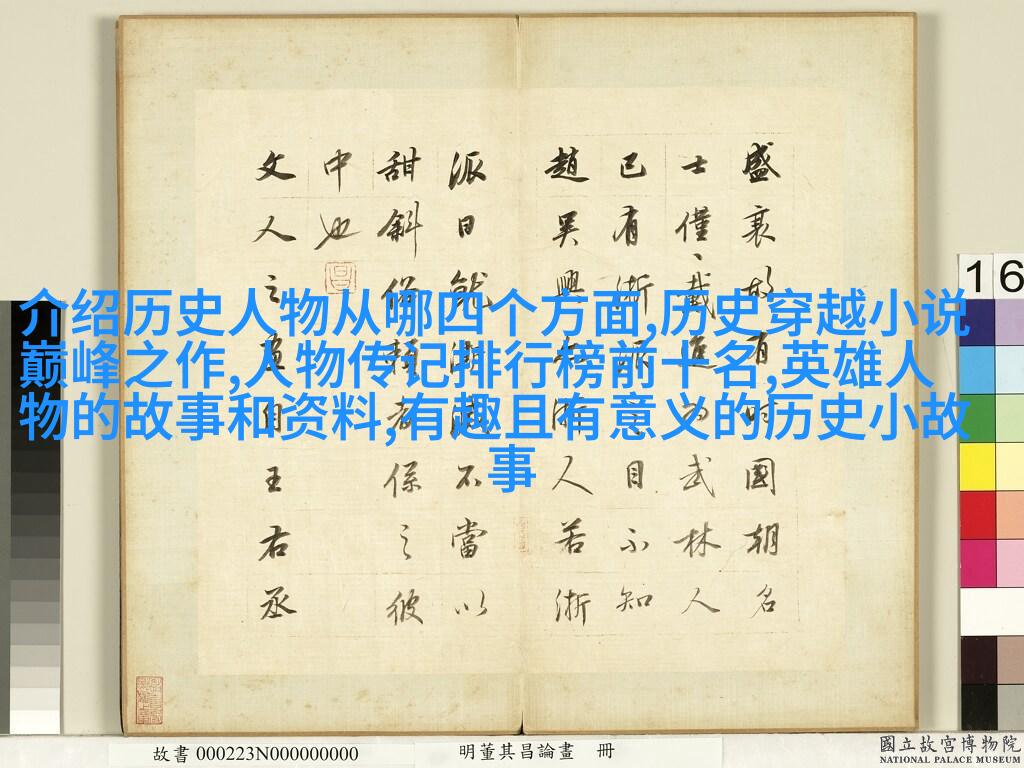 介绍历史人物从哪四个方面,历史穿越小说
巅峰之作,人物传记排行榜前十名,英雄人
物的故事和资料,有趣且有意义的历史小故
事
盛衰故有時國朝名
士僅、戴進為武林人
已有浙派之目不知
趙吳興亦浙人若浙
派日就澌滅不當以
甜斜俗賴者係之彼
中也
文人之畫自王右丞
16
故書 000223N000000000
明董其昌論畫 冊
國立故宮博物院
NATIONAL PALACE MUSEUM